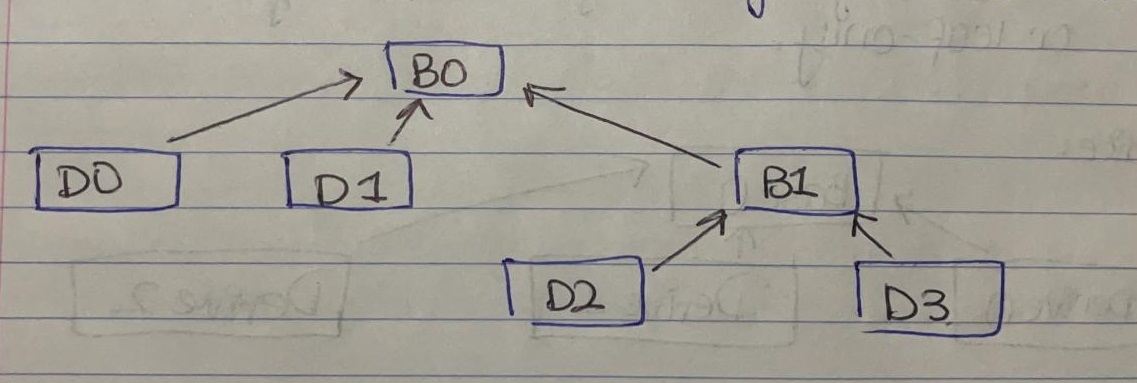 B0
D0 D1 B1
D2 D3